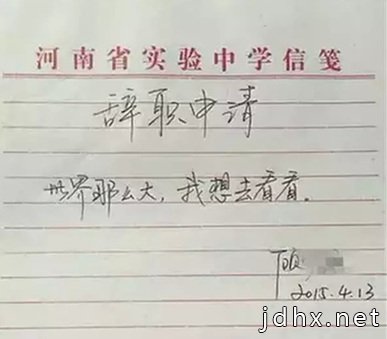 河南省实验中学信笺
辞职申请
世界那么大,我想去看看。
顾
2015.4.13
jdhx.net